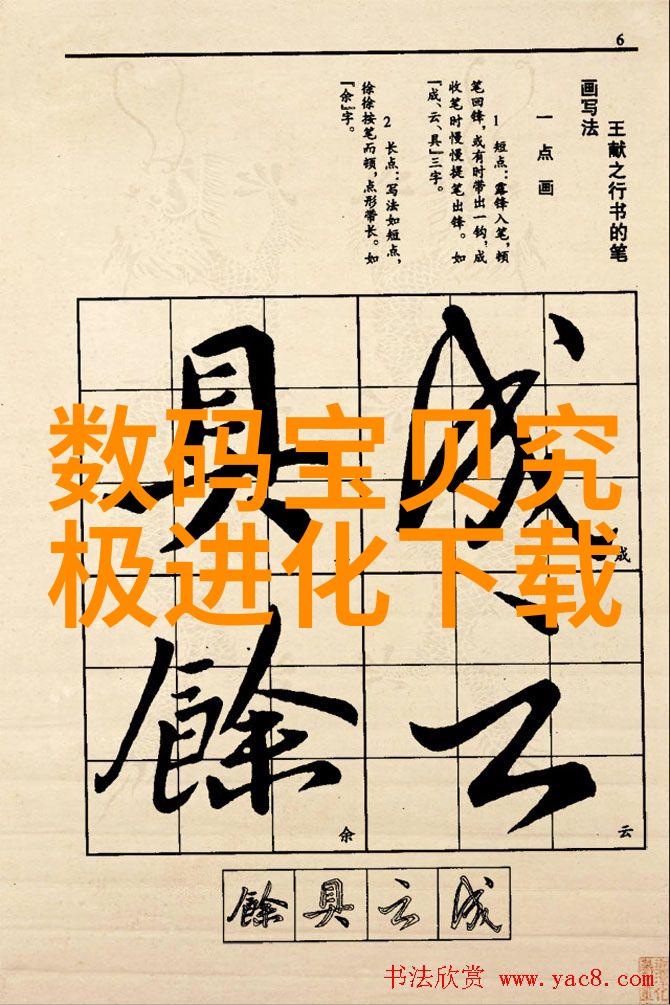 6
王献之行书的笔
画写法
一 点 画
1 短点：露锋入笔，顿
笔回锋，或有时带出一钩，成
收笔时慢慢提笔出锋。如
『成、云、具』三字。
2 长点：写法如短点，
徐徐按笔而顿，点形带长。如
『余』字。
成
具
云
餘
成
云
余
数码宝贝究
极进化下载
餘 具 云 成
书法欣赏 www.yac8.com